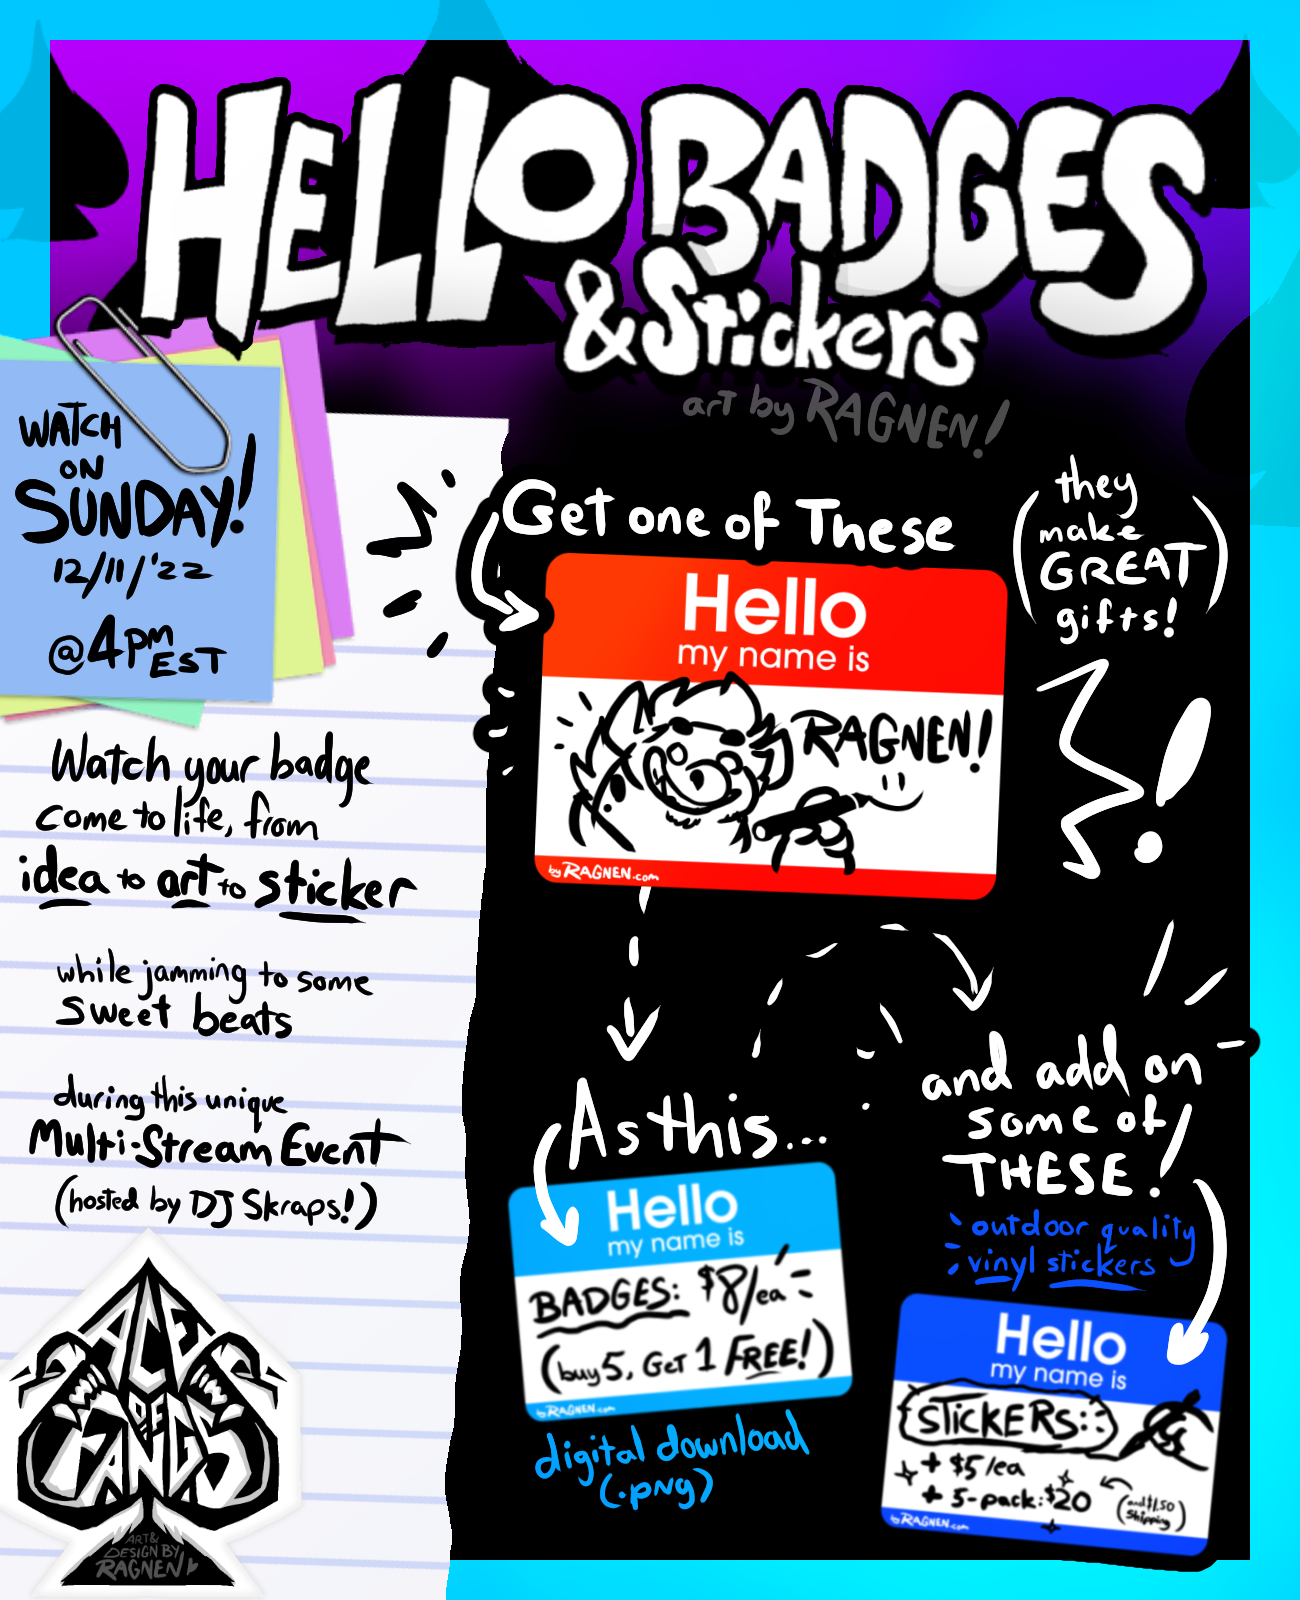 HELLO BADGES
& Stickers
art by RAGNEN!
WATCH
ON
SUNDAY!
12/11/'22
@4pm
EST
Get one of These
(they
make
GREAT
gifts!)
Hello
my name is
RAGNEN!
by RAGNEN.com
Watch your badge
come to life, from
idea to art to sticker
while jamming to some
sweet beats
during this unique
Multi-Stream Event
(hosted by DJ Skraps!)
ACE
OF
FANGS
ART &
DESIGN BY
RAGNEN
As this...
Hello
my name is
BADGES: $8/ea
(buy 5, Get 1 FREE!)
by RAGNEN.com
digital download
(.png)
and add on
some of
THESE!
outdoor quality
vinyl stickers
Hello
my name is
STICKERS:
+ $5/ea
+ 5-pack: $20
(and $1.50
Shipping)
by RAGNEN.com